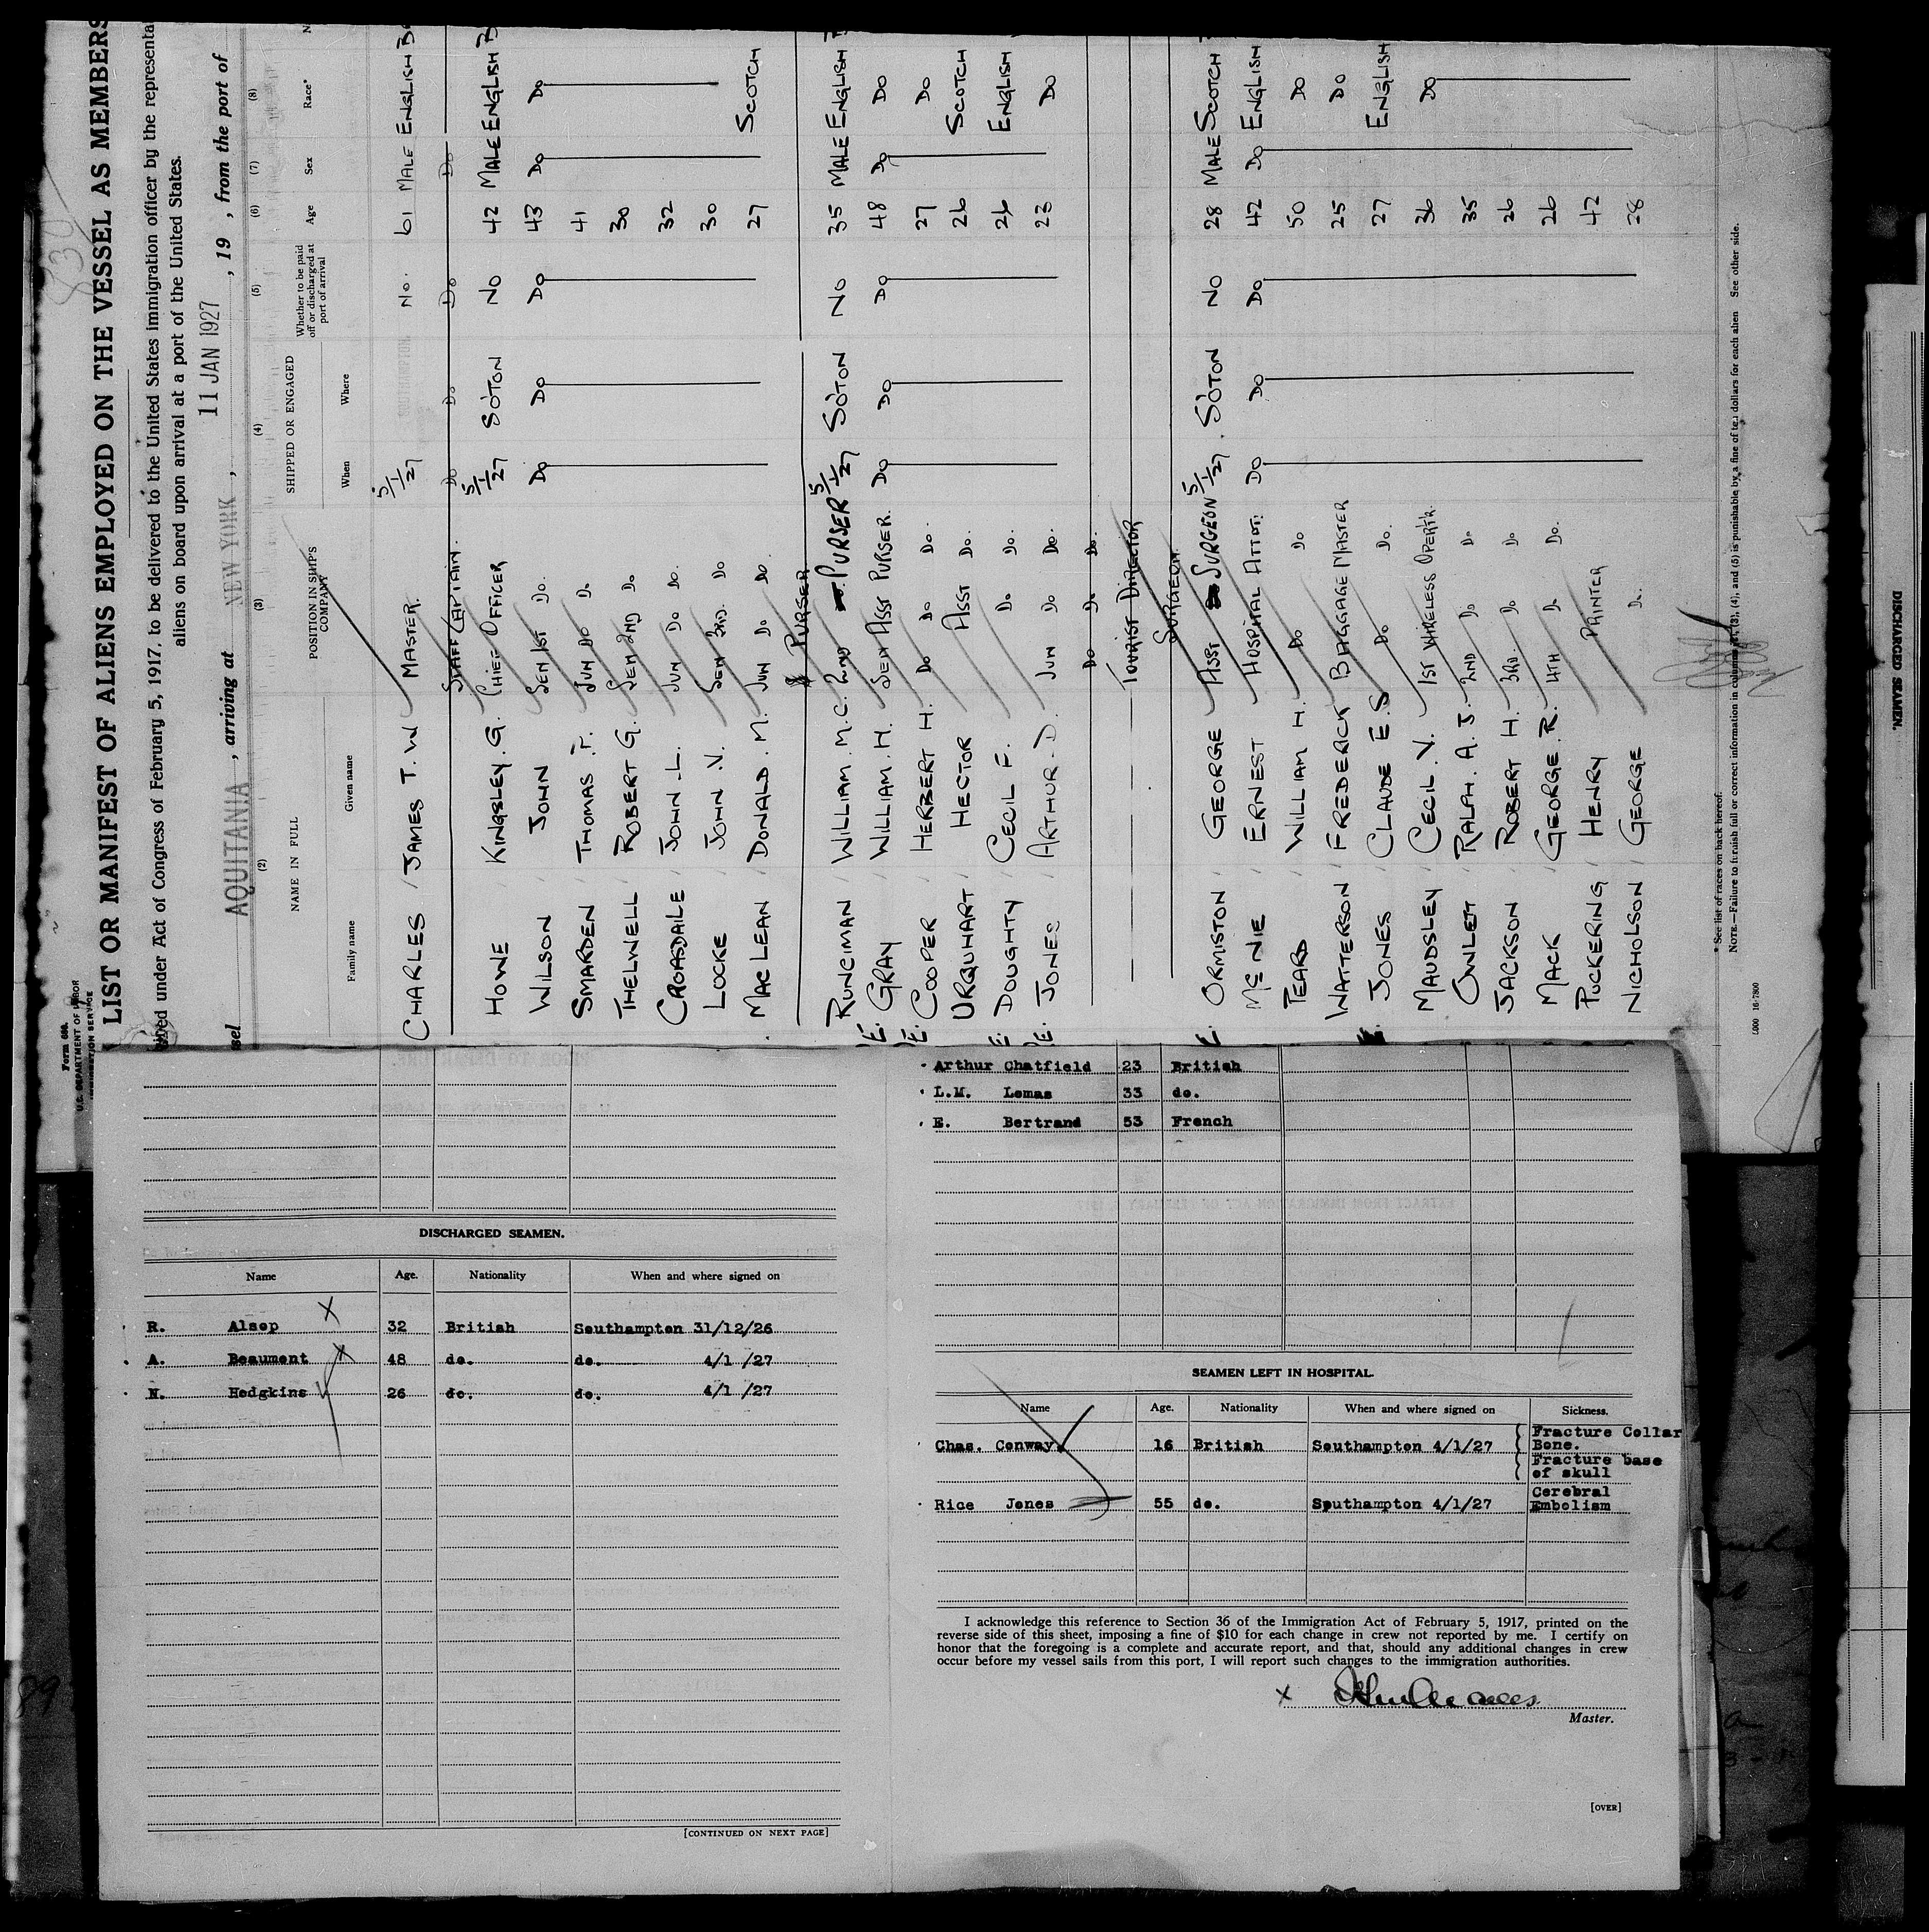 Form 680.
U.S. DEPARTMENT OF LABOR
IMMIGRATION SERVICE
LIST OR MANIFEST OF ALIENS EMPLOYED ON THE VESSEL AS MEMBERS
under Act of Congress of February 5, 1917, to be delivered to the United States immigration officer by the representa
aliens on board upon arrival at a port of the United States.
AQUITANIA, arriving at NEW YORK, 11 JAN 1927, 19 , from the port of
(2) (3) (4) (5) (6) (7) (8)
NAME IN FULL POSITION IN SHIP'S COMPANY SHIPPED OR ENGAGED Whether to be paid off or discharged at port of arrival Age Sex Race*
Family name Given name When Where
CHARLES JAMES T. W MASTER. 5/1/27 No. 61 MALE ENGLISH
STAFF CAPTAIN. Do Do Do Do
HOWE KINGSLEY. G. CHIEF OFFICER 5/1/27 SO'TON NO 42 MALE ENGLISH
WILSON JOHN SEN 1ST DO. DO DO DO 43 DO DO
SMARDEN THOMAS. F. JUN DO DO 41
THELWELL ROBERT G. SEN 2ND DO 30
CROASDAILE JOHN. L. JUN DO DO. 32
LOCKE JOHN. V. SEN 3RD. DO 30
MACLEAN DONALD. M. JUN DO DO 27 SCOTCH
PURSER
RUNCIMAN WILLIAM. M. C. 2ND PURSER 5/1/27 SO'TON NO 35 MALE ENGLISH
GRAY WILLIAM. H. SEN ASST PURSER. DO DO DO 48 DO DO
COOPER HERBERT H. DO DO DO. 27 DO
URQUHART HECTOR ASST DO. 26 SCOTCH
DOUGHTY CECIL F. DO DO. 26 ENGLISH
JONES ARTHUR. D. JUN DO DO. 23 DO
DO DO DO.
TOURIST DIRECTOR
SURGEON
ORMISTON GEORGE ASST SURGEON 5/1/27. SO'TON NO 28 MALE SCOTCH
McNIE ERNEST HOSPITAL ATTDT. DO DO DO 42 DO ENGLISH
TEARD WILLIAM H. DO DO 50 DO
WATTERSON FREDERICK BAGGAGE MASTER 25 DO
JONES CLAUDE E. S DO DO. 27 ENGLISH
MAUDSLEY CECIL. V. 1ST WIRELESS OPERTR. 36 DO
OWLETT RALPH. A. J. 2ND DO DO 35
JACKSON ROBERT H. 3RD. DO DO 26
MACK GEORGE. R. 4TH DO DO. 26
PUCKERING HENRY PAINTER 42
NICHOLSON GEORGE DO. 28
* See list of races on back hereof.
NOTE.—Failure to furnish full or correct information in columns (2), (3), (4), and (5) is punishable by a fine of ten dollars for each alien See other side.
16-7800
DISCHARGED SEAMEN.
Name Age. Nationality When and where signed on
R. Alsop 32 British Southampton 31/12/26
A. Beaumont 48 do. do. 4/1 /27
N. Hodgkins 26 do. do. 4/1 /27
[CONTINUED ON NEXT PAGE]
Arthur Chatfield 23 British
L.M. Lomas 33 do.
E. Bertrand 53 French
SEAMEN LEFT IN HOSPITAL.
Name Age. Nationality When and where signed on Sickness.
Chas. Conway 16 British Southampton 4/1/27 Fracture Collar Bone.
Fracture base of skull
Rice Jones 55 do. Southampton 4/1/27 Cerebral Embolism
I acknowledge this reference to Section 36 of the Immigration Act of February 5, 1917, printed on the
reverse side of this sheet, imposing a fine of $10 for each change in crew not reported by me. I certify on
honor that the foregoing is a complete and accurate report, and that, should any additional changes in crew
occur before my vessel sails from this port, I will report such changes to the immigration authorities.
X
Master.
[OVER]
DISCHARGED SEAMEN.